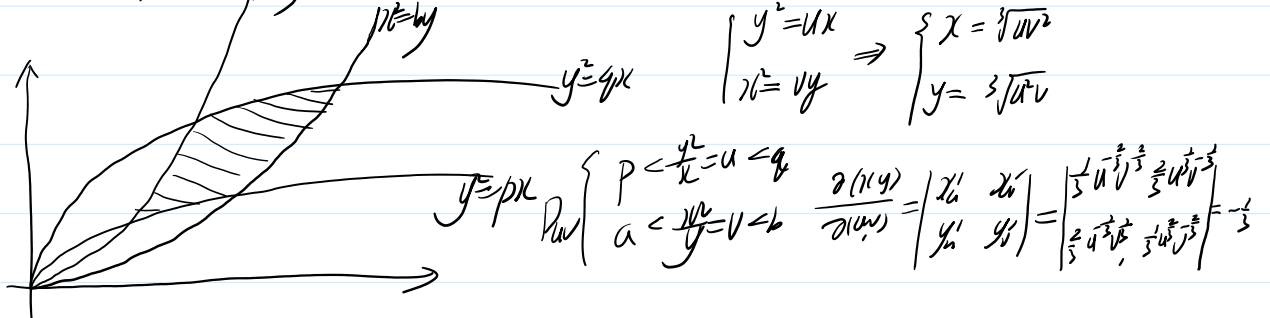 x²=by
y²=qx
y²=px
{ y²=ux
x²=vy ⇒ { x = ∛uv²
y = ∛u²v
D_uv { p < y²/x = u < q
a < x²/y = v < b
∂(x,y)/∂(u,v) = | x'_u x'_v
y'_u y'_v | = | 1/3 u^(-2/3) v^(2/3) 2/3 u^(1/3) v^(-1/3)
2/3 u^(-1/3) v^(1/3) 1/3 u^(2/3) v^(-2/3) | = -1/3